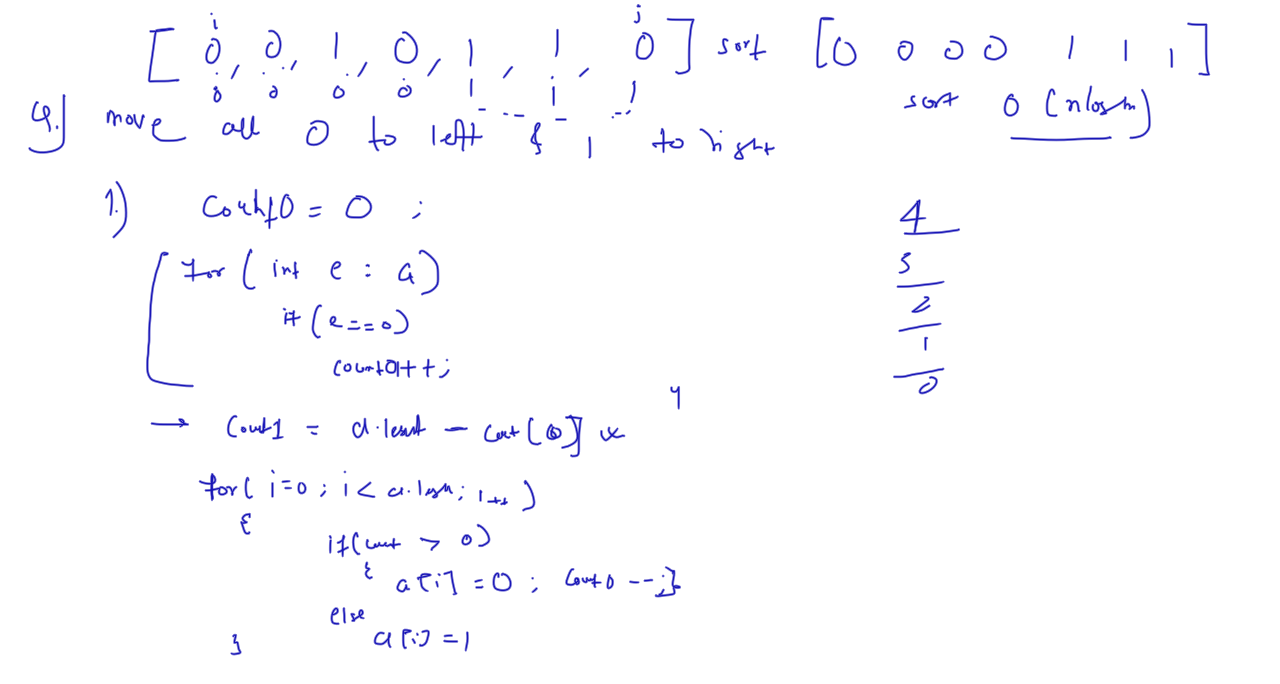 i j
[ 0, 0, 1, 0, 1, 1, 0 ] sort [ 0 0 0 0 1 1 1 ]
0 0 0 0 1 1 1
sort O (nlogn)
Q.] move all 0 to left & 1 to right
1.) Count0 = 0 ;
4
for ( int e : a )
3
if ( e == 0 )
2
1
count0++ ;
0
4
→ Count1 = a.length - cnt[0] x
for( i=0 ; i < a.length ; i++ )
{
if( count > 0 )
{ a[i] = 0 ; Count0 -- ; }
else
a[i] = 1
}